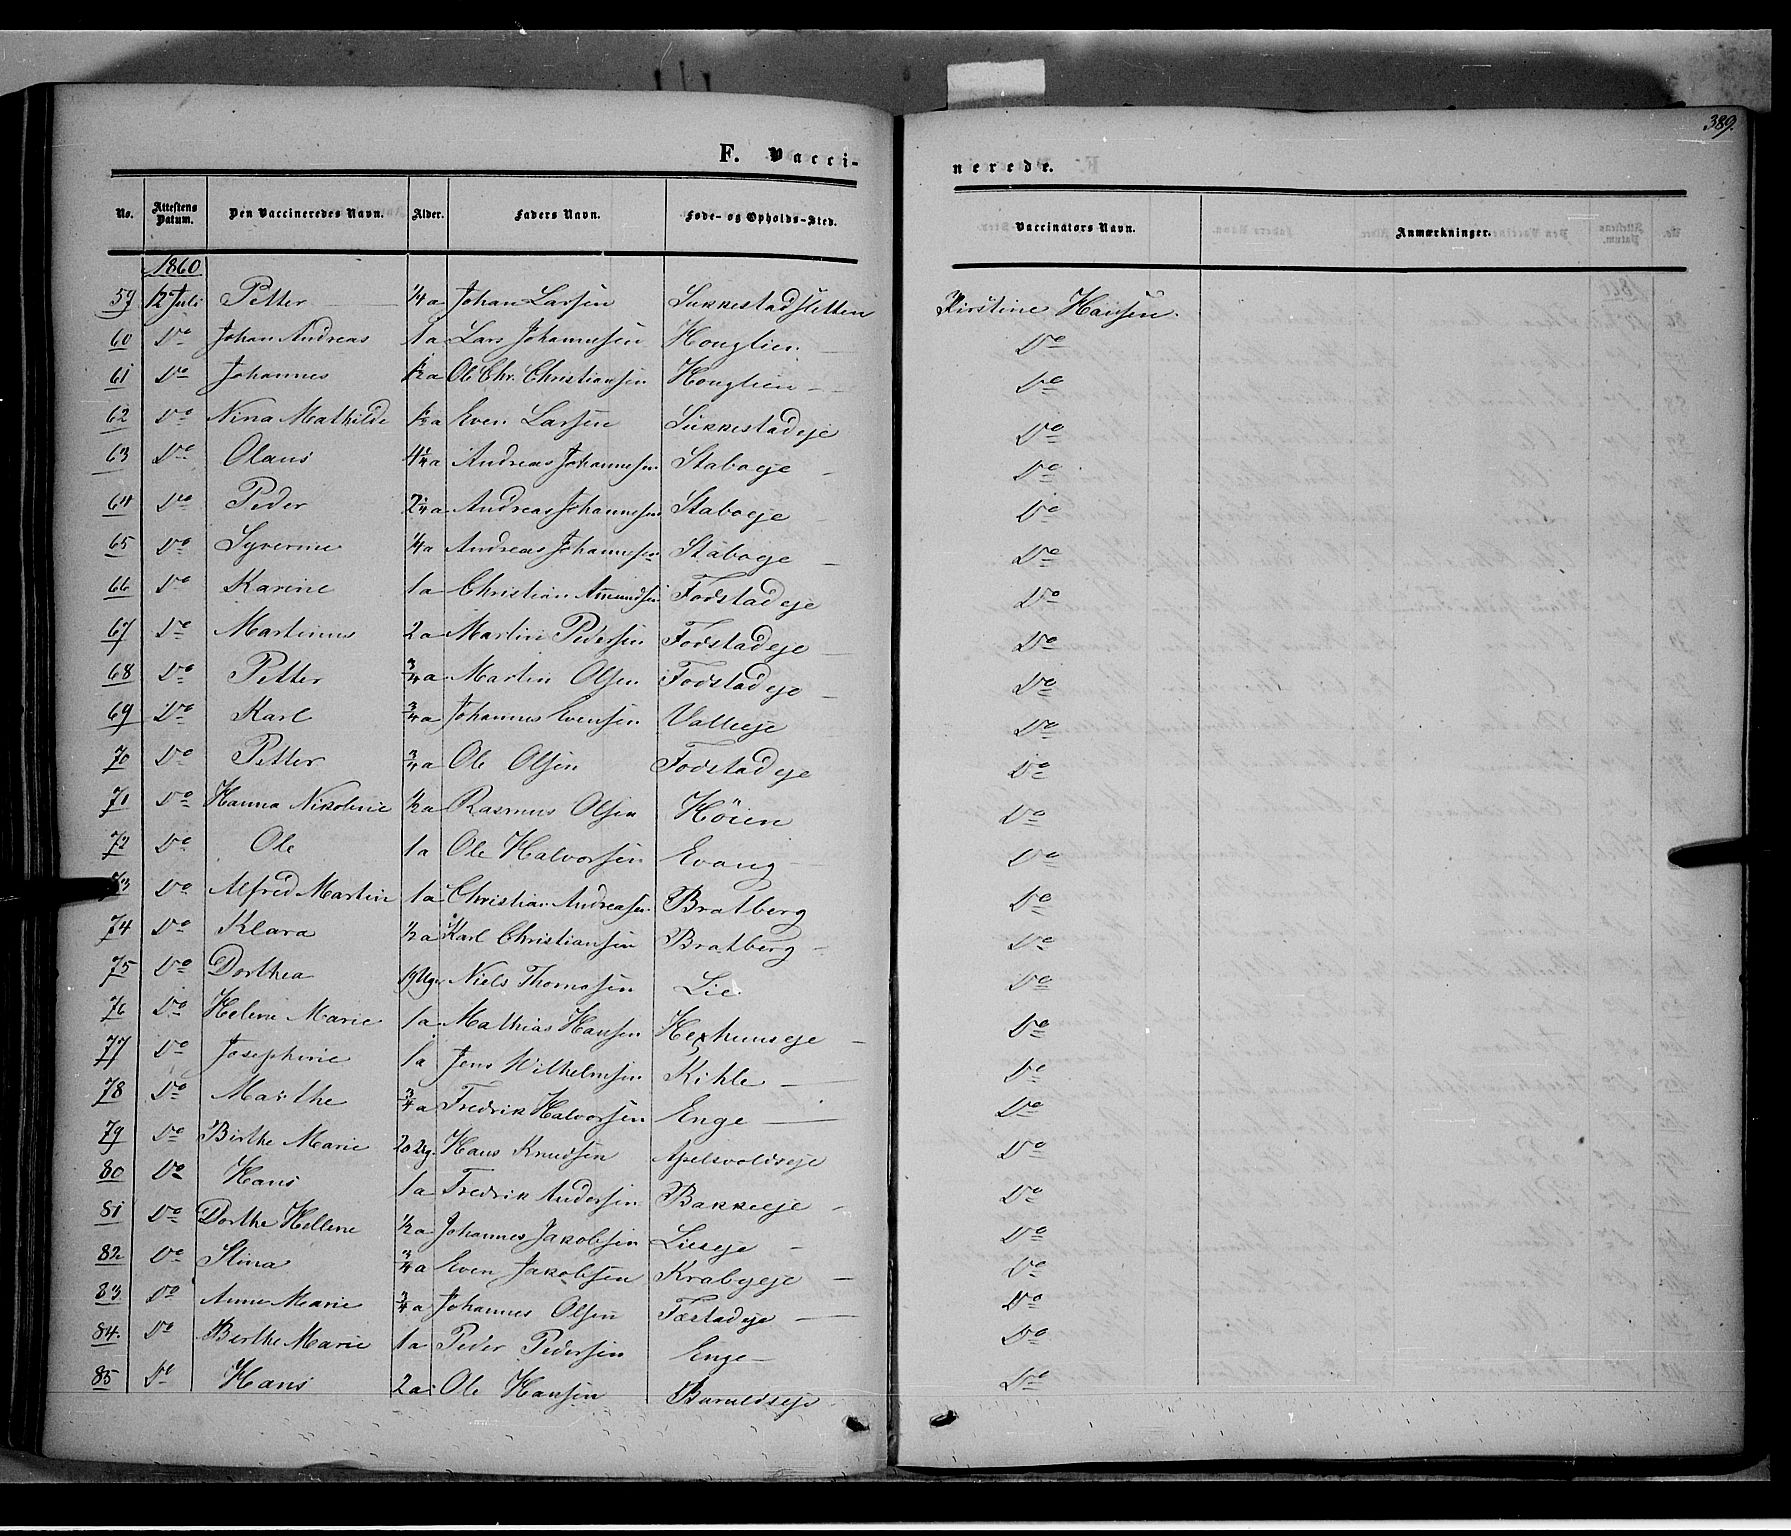 389.
F. Vaccinerede.
No. Attestens Datum. Den Vaccineredes Navn. Alder. Faders Navn. Føde- og Opholds-Sted. Vaccinators Navn. Anmærkninger.
1860
59 12 Juli Petter 1/4 a Johan Larsen Sukkestadsletten Kirstine Hansen.
60 Do Johan Andreas 1 a Lars Johannesen Houglien Do
61 Do Johannes 1/2 a Ole Chr. Christiansen Houglien Do
62 Do Nina Mathilde 1/2 a Even Larsen Sukkestadeje Do
63 Do Olaus 4 1/4 a Andreas Johannesen Staboeje Do
64 Do Peder 2 1/4 a Andreas Johannesen Staboeje Do
65 Do Syverine 1/4 a Andreas Johannesen Staboeje Do
66 Do Karine 1 a Christian Amundsen Fodstadeje Do
67 Do Martinus 2 a Martin Pedersen Fodstadeje Do
68 Do Petter 3/4 a Martin Olsen Fodstadeje Do
69 Do Karl 3/4 a Johannes Evensen Valleeje Do
70 Do Petter 3/4 a Ole Olsen Fodstadeje Do
71 Do Hanna Nikoline 1/2 a Rasmus Olsen Høien Do
72 Do Ole 1 a Ole Halvorsen Evang Do
73 Do Alfred Martin 1 a Christian Andreasen Bratberg Do
74 Do Klara 1/2 a Karl Christiansen Bratberg Do
75 Do Dorthea 19 Uger Niels Thomasen Lie Do
76 Do Helene Marie 1 a Mathias Hansen Do
77 Do Josephine 1 a Jens Wilhelmsen Kihle Do
78 Do Marthe 3/4 a Fredrik Halvorsen Enge Do
79 Do Birthe Marie 20 Ug. Hans Knudsen Apelsvoldseje Do
80 Do Hans 1 a Fredrik Andersen Bakkeeje Do
81 Do Dorthe Hellene 1/2 a Johannes Jakobsen Lieseje Do
82 Do Stina 3/4 a Even Jakobsen Krabyeje Do
83 Do Anne Marie 3/4 a Johannes Olsen Fæstadeje Do
84. Do Birthe Marie 1 a Peder Pedersen Enge Do
85 Do Hans 2 a Ole Hansen Do